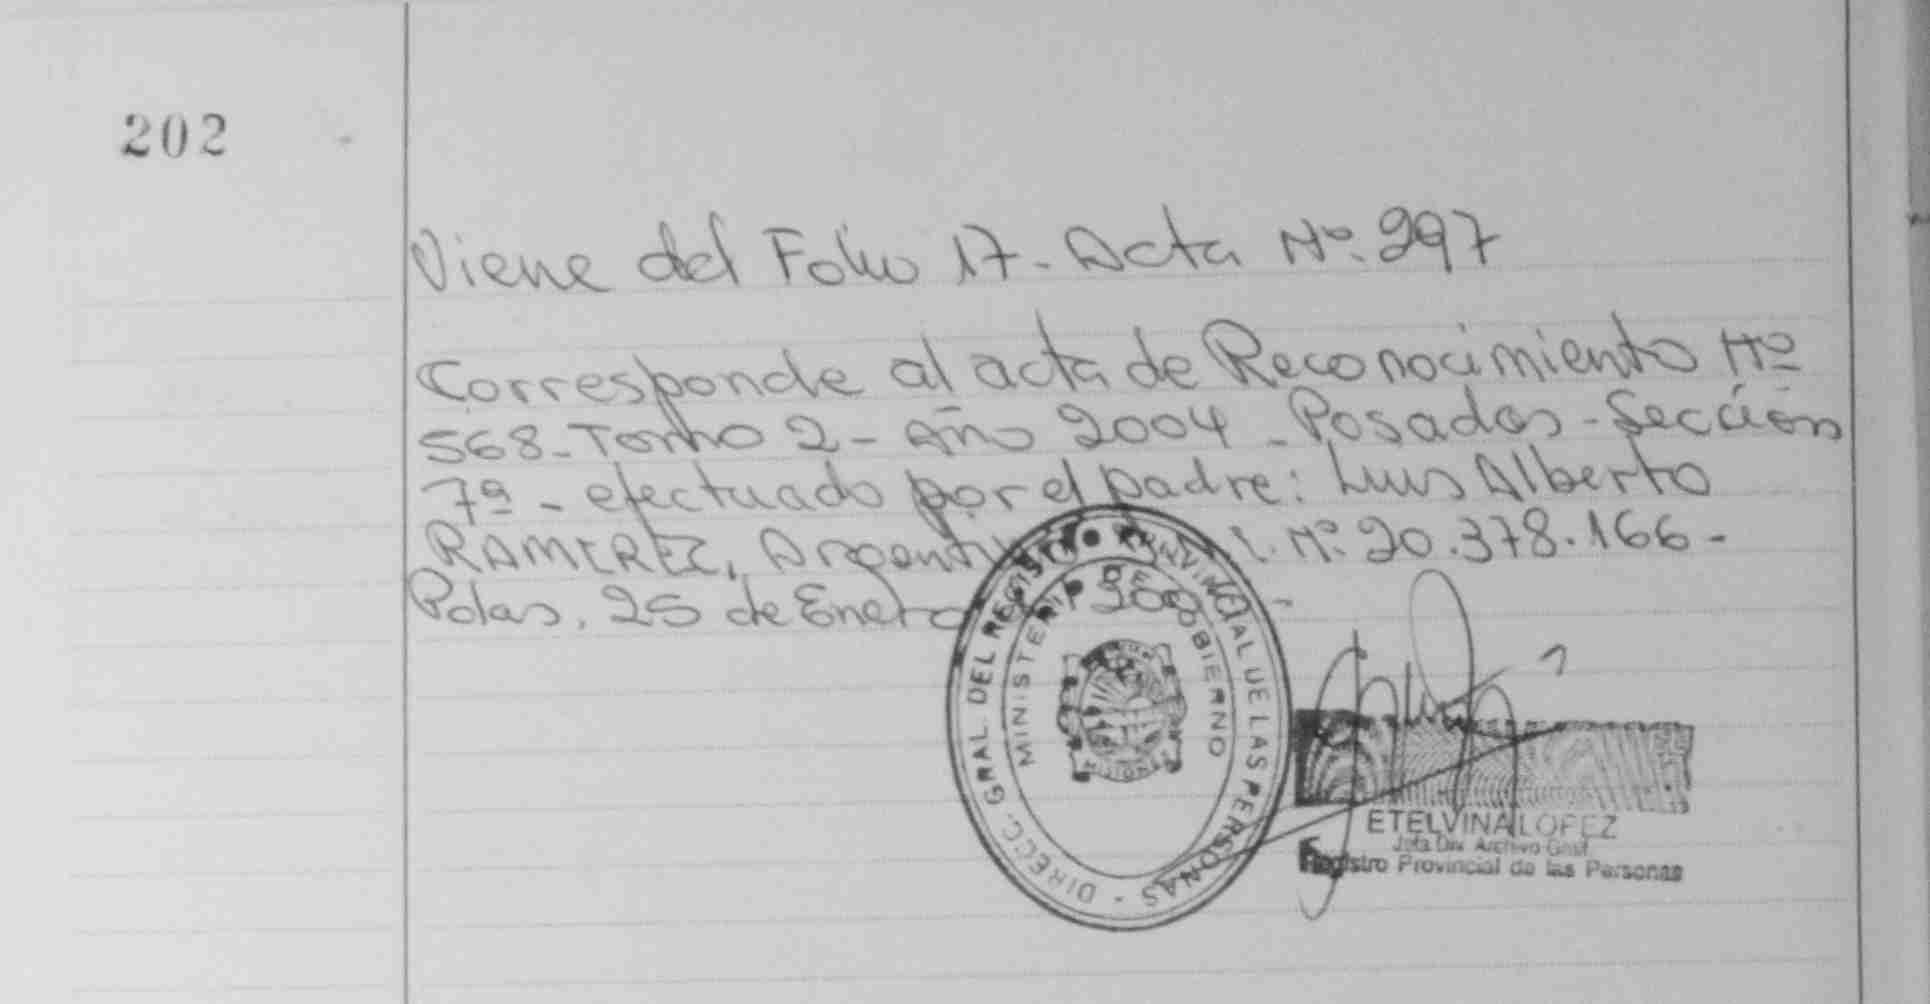 202
Viene del Folio 17. Acta Nº. 297
Corresponde al acta de Reconocimiento Nº
568 - Tomo 2 - Año 2004 - Posadas - Sección
7ª - efectuado por el padre: Luis Alberto
RAMIREZ, Nº. 20.378.166 -
Pdas. 25 de Enero
DIRECC. GRAL. DEL REGISTRO PROVINCIAL DE LAS PERSONAS -
MINISTERIO DE GOBIERNO
MISIONES
ETELVINA LOPEZ
Jefa Div. Archivo Gral.
Registro Provincial de las Personas